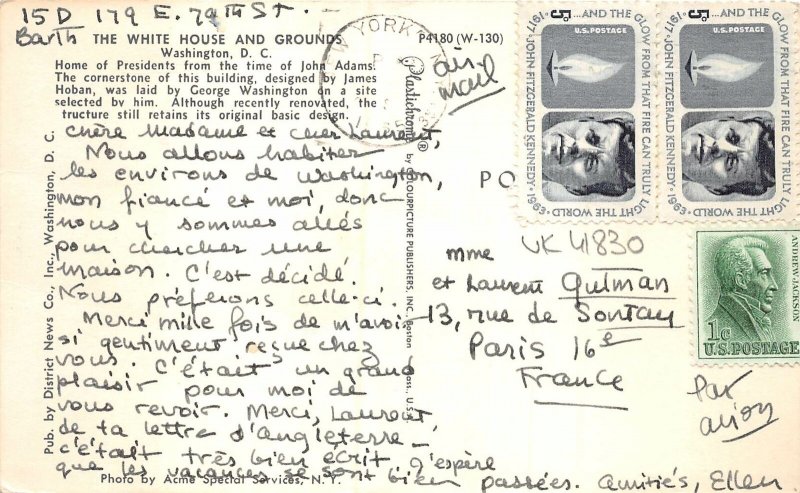 15 D 179 E. 79th St.
Barth
THE WHITE HOUSE AND GROUNDS
Washington, D. C.
P4180 (W-130)
Home of Presidents from the time of John Adams.
The cornerstone of this building, designed by James
Hoban, was laid by George Washington on a site
selected by him. Although recently renovated, the
tructure still retains its original basic design.
air
mail
Chère Madame et cher Laurent,
Nous allons habiter
les environs de Washington,
mon fiancé et moi, donc
nous y sommes allés
pour chercher une
maison. C'est décidé.
Nous préférons celle-ci.
Merci mille fois de m'avoir
si gentiment reçue chez
vous. C'était un grand
plaisir pour moi de
vous revoir. Merci, Laurent,
de ta lettre d'Angleterre –
c'était très bien écrit. J'espère
que les vacances se sont bien passées. Amitiés, Ellen
Photo by Acme Special Services, N. Y.
Pub. by District News Co., Inc., Washington, D. C.
Plastichrome®
by COLOURPICTURE PUBLISHERS, INC., Boston
Mass., U.S.A.
NEW YORK
PO
UK 41830
Mme
et Laurent Gutman
13, rue de Sontay
Paris 16e
France
par
avion
1917-JOHN FITZGERALD KENNEDY-1963
...AND THE GLOW FROM THAT FIRE CAN TRULY LIGHT THE WORLD
5c
U.S. POSTAGE
1917-JOHN FITZGERALD KENNEDY-1963
...AND THE GLOW FROM THAT FIRE CAN TRULY LIGHT THE WORLD
5c
U.S. POSTAGE
ANDREW JACKSON
1c
U.S. POSTAGE